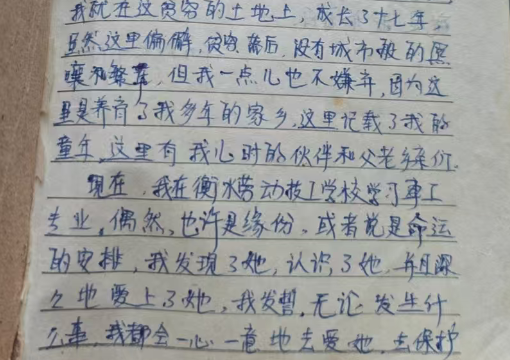 我就在这贫穷的土地上，成长了十七年，
虽然这里偏僻，贫穷落后，没有城市般的喧
嚷和繁华，但我一点儿也不嫌弃，因为这
里是养育了我多年的家乡，这里记载了我的
童年，这里有我儿时的伙伴和父老乡亲们.
现在，我在衡水劳动技工学校学习车工
专业。偶然，也许是缘份，或者说是命运
的安排，我发现了她，认识了她，并且深
深地爱上了她，我发誓，无论发生什
么事，我都会一心一意地去爱她，去保护